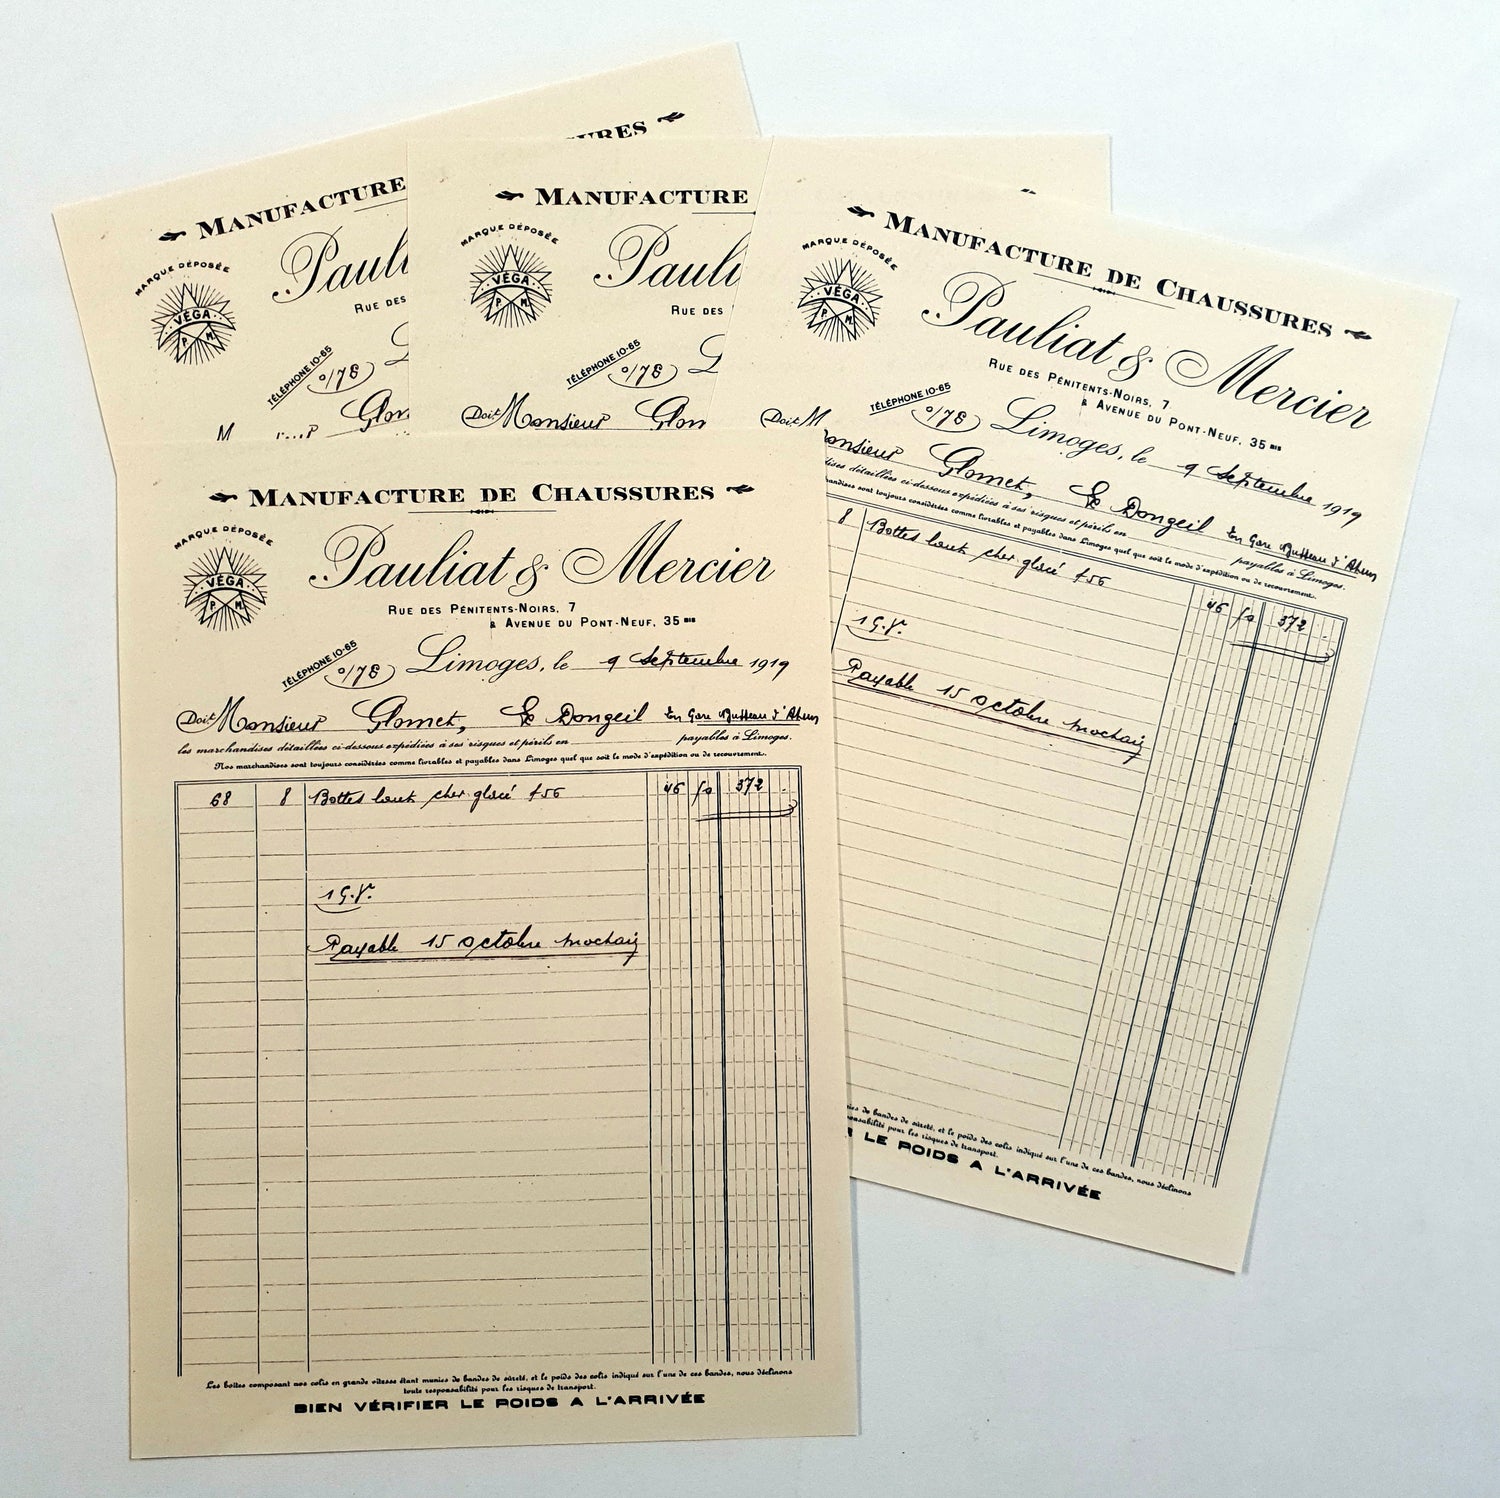 URES
MANUFACTURE
MARQUE DÉPOSÉE
VÉGA
P M
Pauli
RUE DES
TÉLÉPHONE 10-65
0/78
L
M
Glom
MANUFACTURE
MARQUE DÉPOSÉE
VÉGA
P M
Pauli
RUE DES
TÉLÉPHONE 10-65
0/78
L
Doit Monsieur Glom
Doit M
MANUFACTURE DE CHAUSSURES
MARQUE DÉPOSÉE
VÉGA
P M
Pauliat & Mercier
RUE DES PÉNITENTS-NOIRS, 7
& AVENUE DU PONT-NEUF, 35 BIS
TÉLÉPHONE 10-65
0/78
Limoges, le 9 Septembre 1919
onsieur Glomet, Dongeil En Gare Busseau d'Ahun
ises détaillées ci-dessous expédiées à ses risques et périls en payables à Limoges.
handises sont toujours considérées comme livrables et payables dans Limoges quel que soit le mode d'expédition ou de recouvrement.
8 Bottes cher glacé 46 50 372
1 G.V.
Payable 15 octobre prochain
ies de bandes de sûreté, et le poids des colis indiqué sur l'une de ces bandes, nous déclinons
onsabilité pour les risques de transport.
R LE POIDS A L'ARRIVÉE
MANUFACTURE DE CHAUSSURES
MARQUE DÉPOSÉE
VÉGA
P M
Pauliat & Mercier
RUE DES PÉNITENTS-NOIRS, 7
& AVENUE DU PONT-NEUF, 35 BIS
TÉLÉPHONE 10-65
0/78
Limoges, le 9 Septembre 1919
Doit Monsieur Glomet, Dongeil En Gare Busseau d'Ahun
les marchandises détaillées ci-dessous expédiées à ses risques et périls en payables à Limoges.
Nos marchandises sont toujours considérées comme livrables et payables dans Limoges quel que soit le mode d'expédition ou de recouvrement.
68 8 Bottes cher glacé 46 50 372
1 G.V.
Payable 15 octobre prochain
Les boîtes composant nos colis en grande vitesse étant munies de bandes de sûreté, et le poids des colis indiqué sur l'une de ces bandes, nous déclinons
toute responsabilité pour les risques de transport.
BIEN VÉRIFIER LE POIDS A L'ARRIVÉE